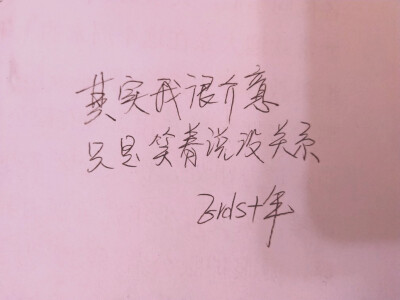 其实我很介意
只是笑着说没关系
十年